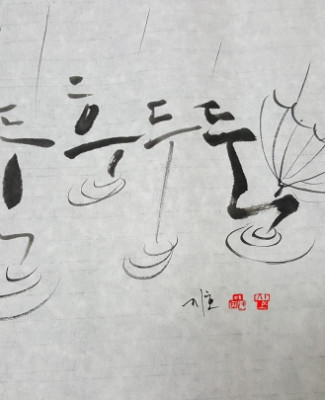 후두둑
지호